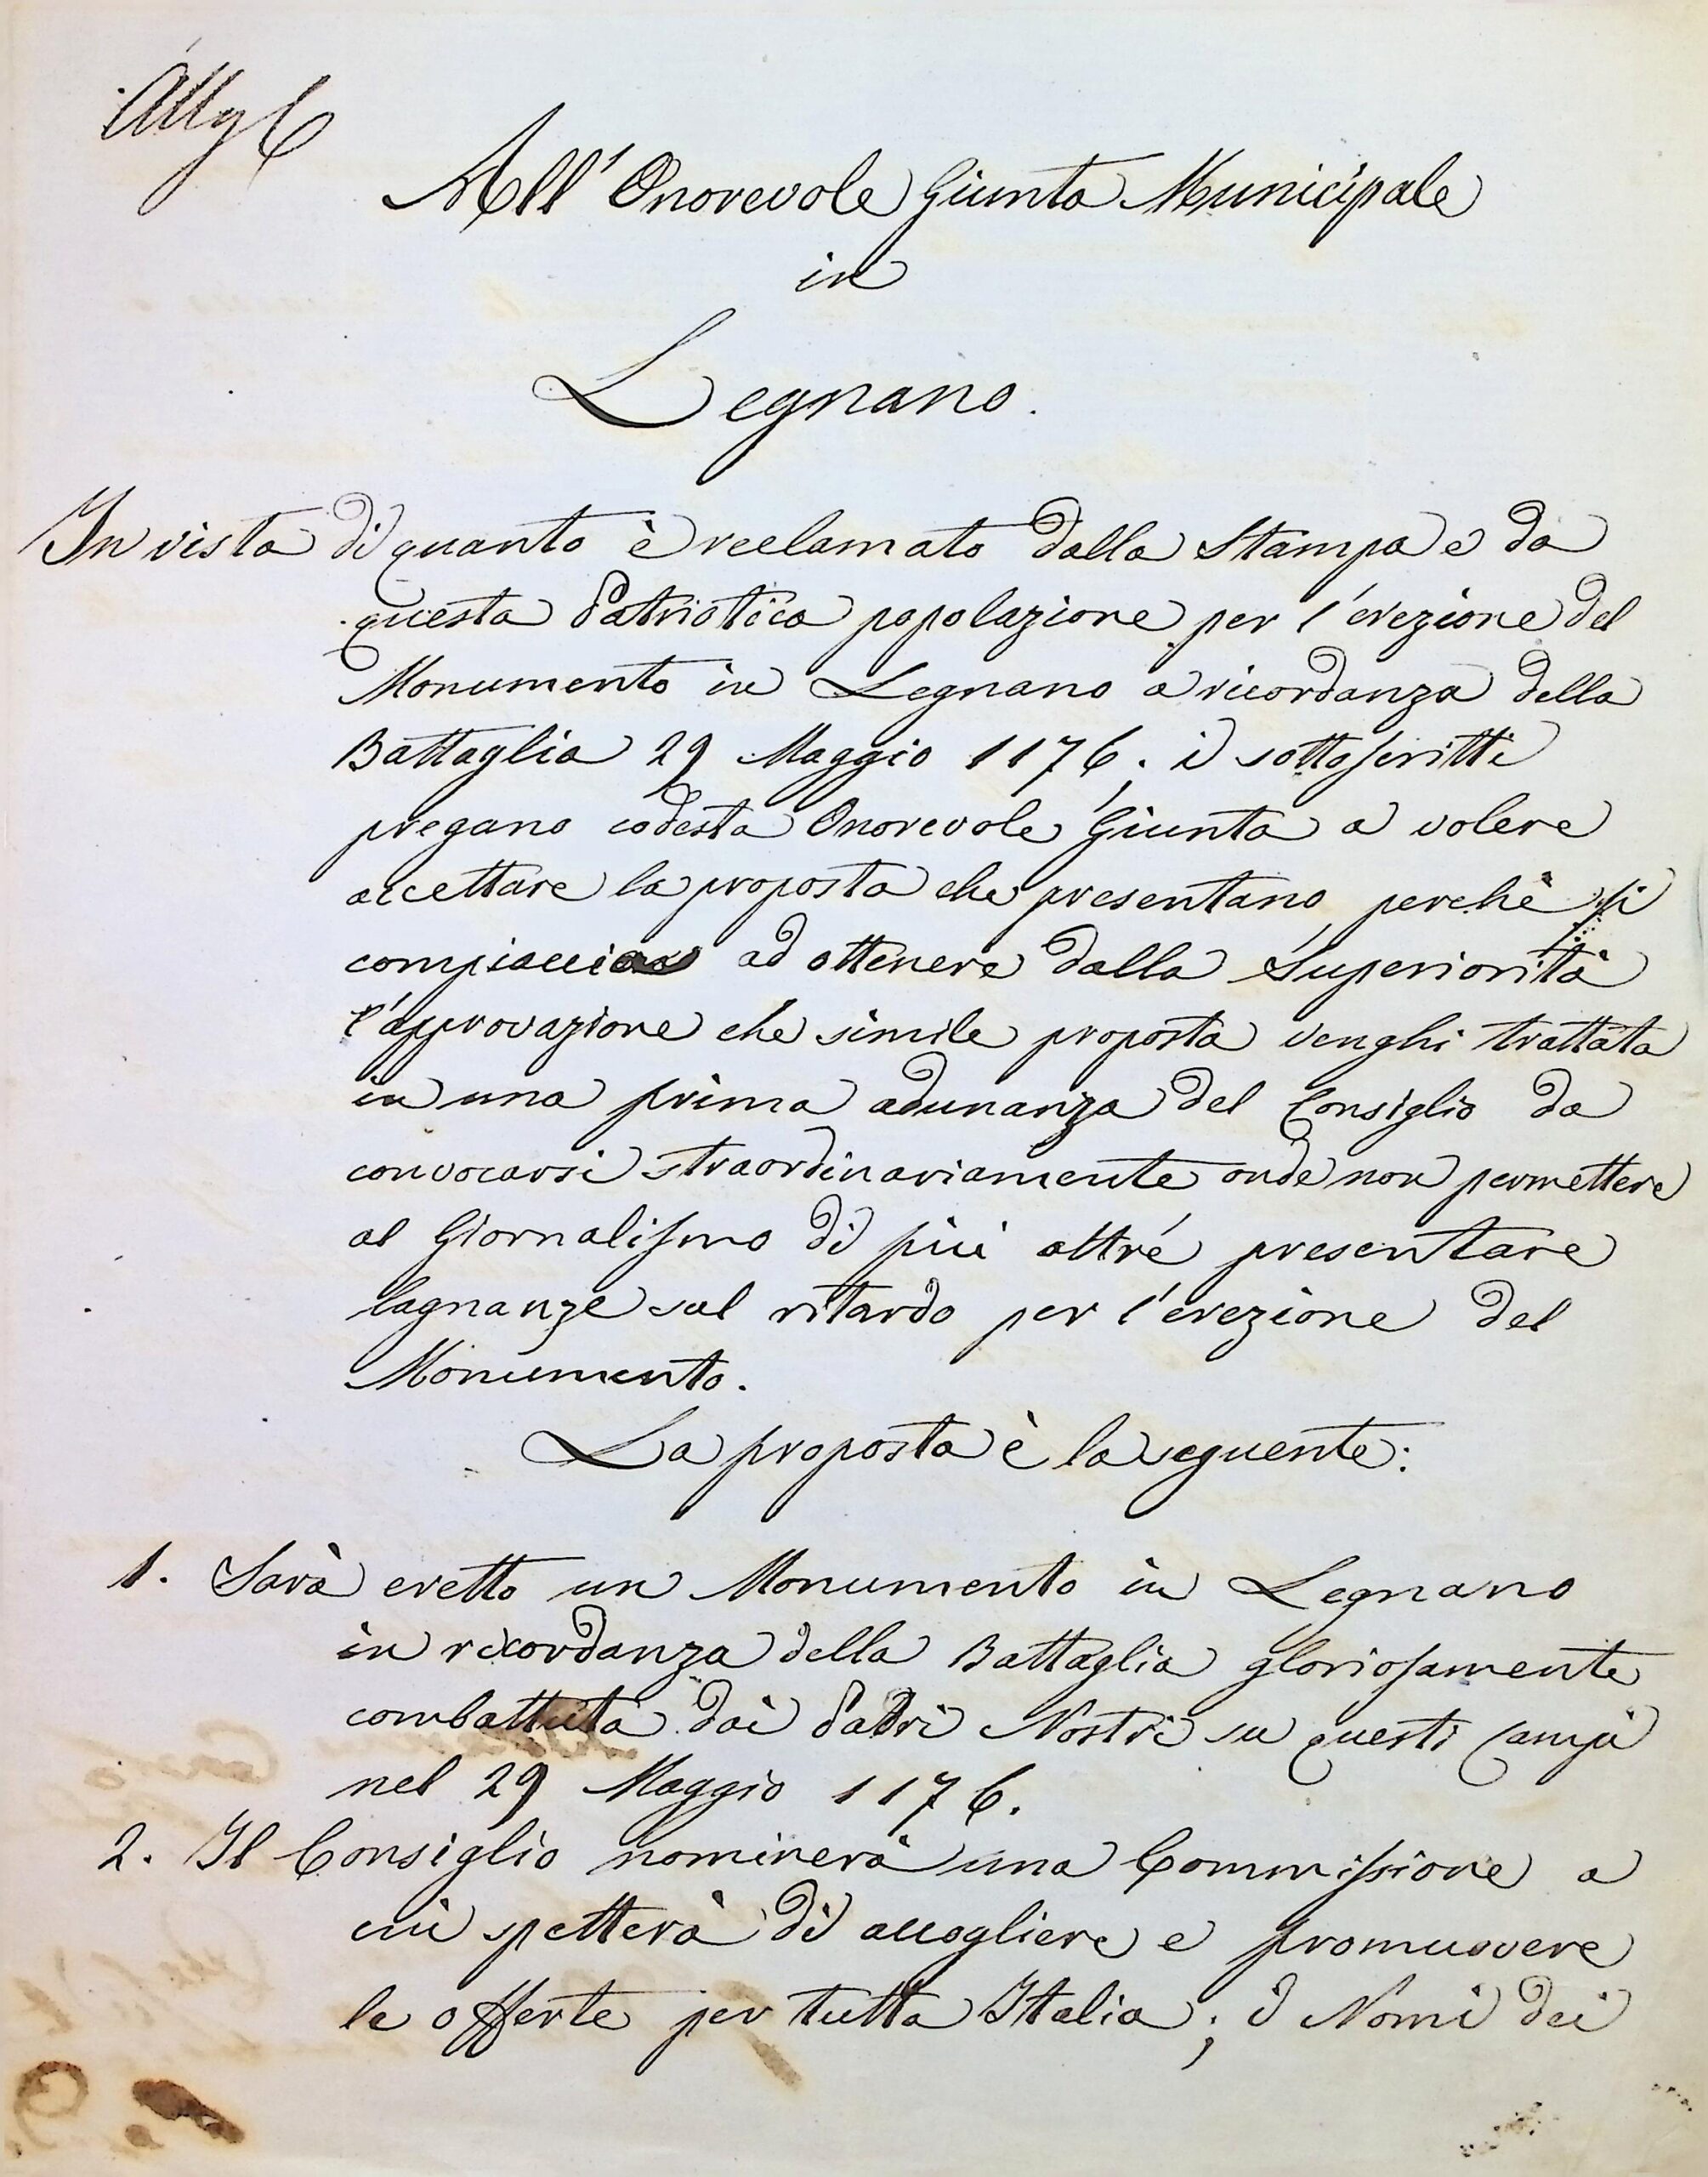 All'Onorevole Giunta Municipale
in
Legnano.
In vista di quanto è reclamato dalla Stampa e da
questa Patriotica popolazione per l'erezione del
Monumento in Legnano a ricordanza della
Battaglia 29 Maggio 1176; i sottoscritti
pregano codesta Onorevole Giunta a volere
accettare la proposta che presentano, perchè si
ad ottenere dalla Superiorità
l'approvazione che simile proposta venghi trattata
in una prima adunanza del Consiglio da
convocarsi straordinariamente onde non permettere
al Giornalismo di più oltre presentare
lagnanze sul ritardo per l'erezione del
Monumento.
La proposta è la seguente:
1. Sarà eretto un Monumento in Legnano
in ricordanza della Battaglia gloriosamente
combattuta dai Padri Nostri su questi Campi
nel 29 Maggio 1176.
2. Il Consiglio nominerà una Commissione a
cui spetterà di accogliere e promuovere
le offerte per tutta Italia; i Nomi dei